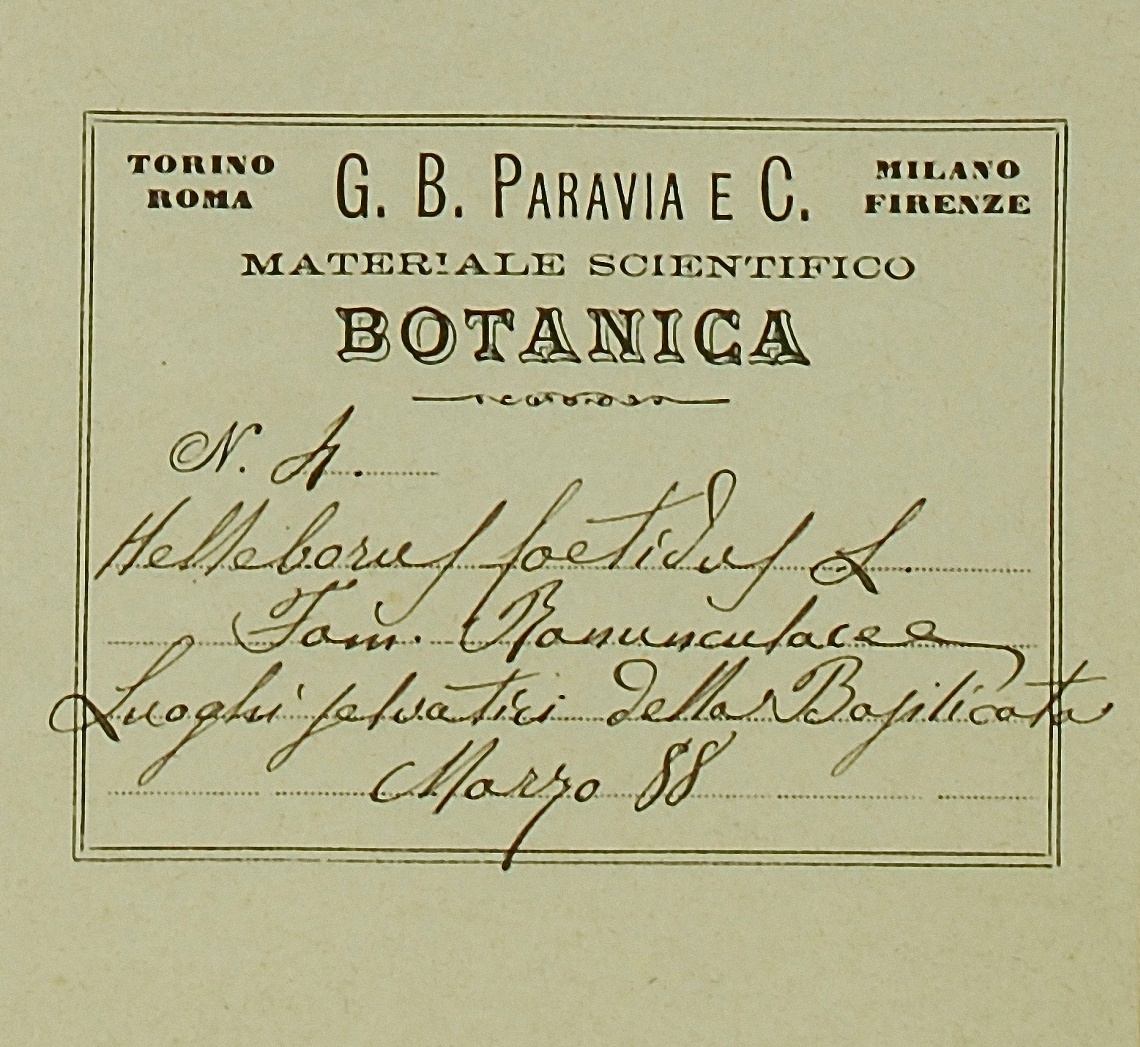 TORINO
ROMA
G. B. PARAVIA E C.
MILANO
FIRENZE
MATERIALE SCIENTIFICO
BOTANICA
N. 4.
Helleborus foetidus L.
Fam. Ranunculacee
Luoghi selvatici della Basilicata
Marzo 88